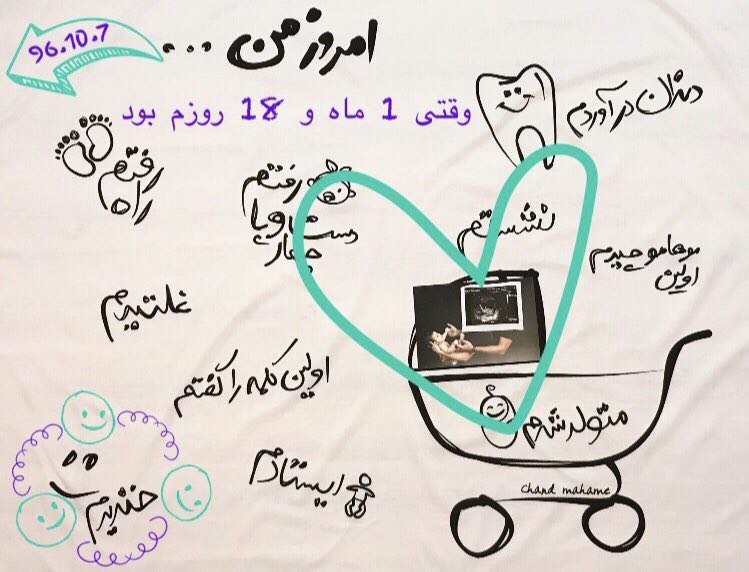 امروز من ...
96.10.7
وقتی 1 ماه و 18 روزم بود
دندان درآوردم
رفتم
راه
رفتم
دست و پا
چهار
نشستم
موهامو چیدم
اولین
غلتیدم
اولین کلمه را گفتم
متولد شدم
ایستادم
خندیدم
chand mahame